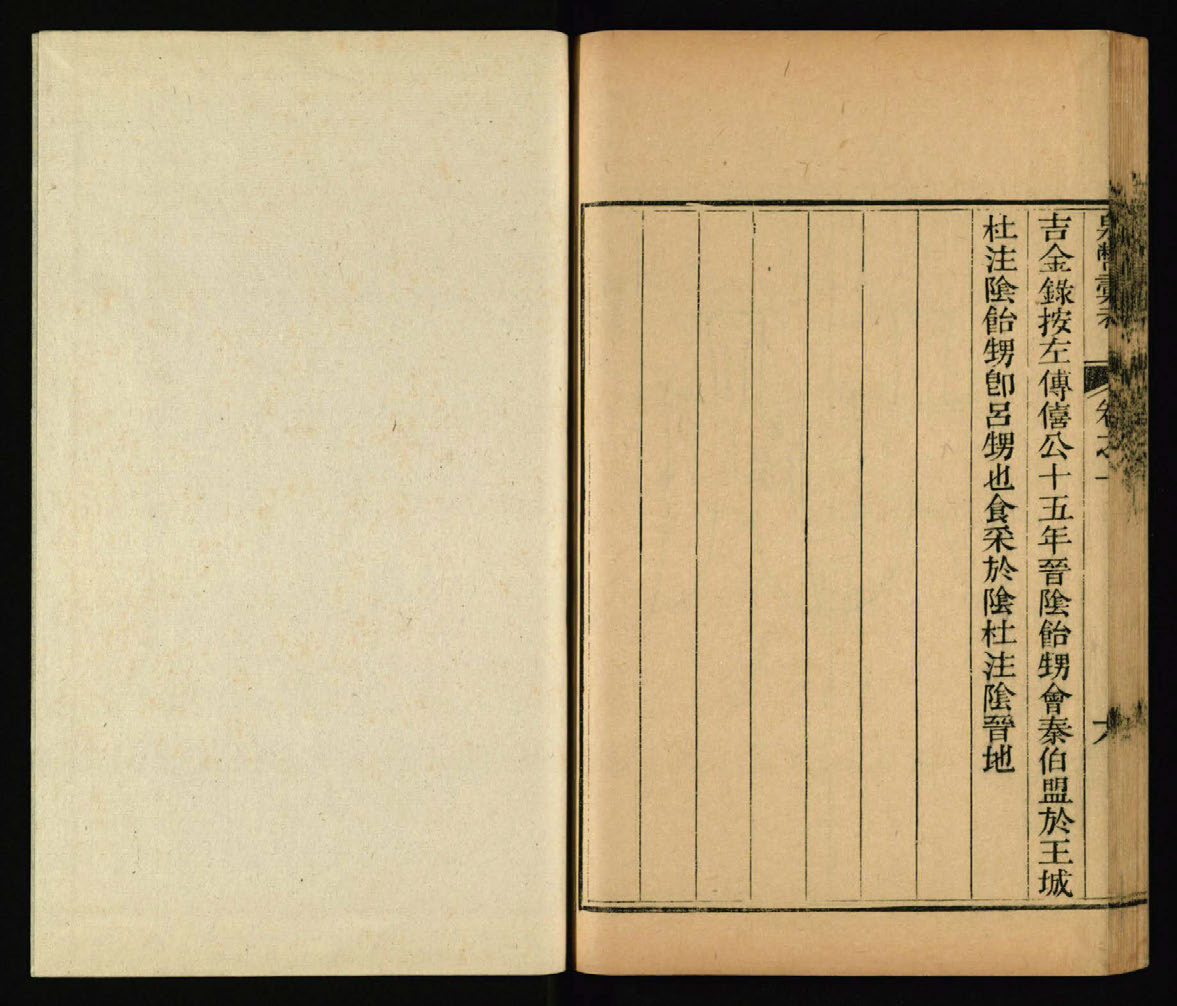 吉金錄按左傳僖公十五年晉陰飴甥會秦伯盟於王城
杜注陰飴甥卽呂甥也食采於陰杜注陰晉地